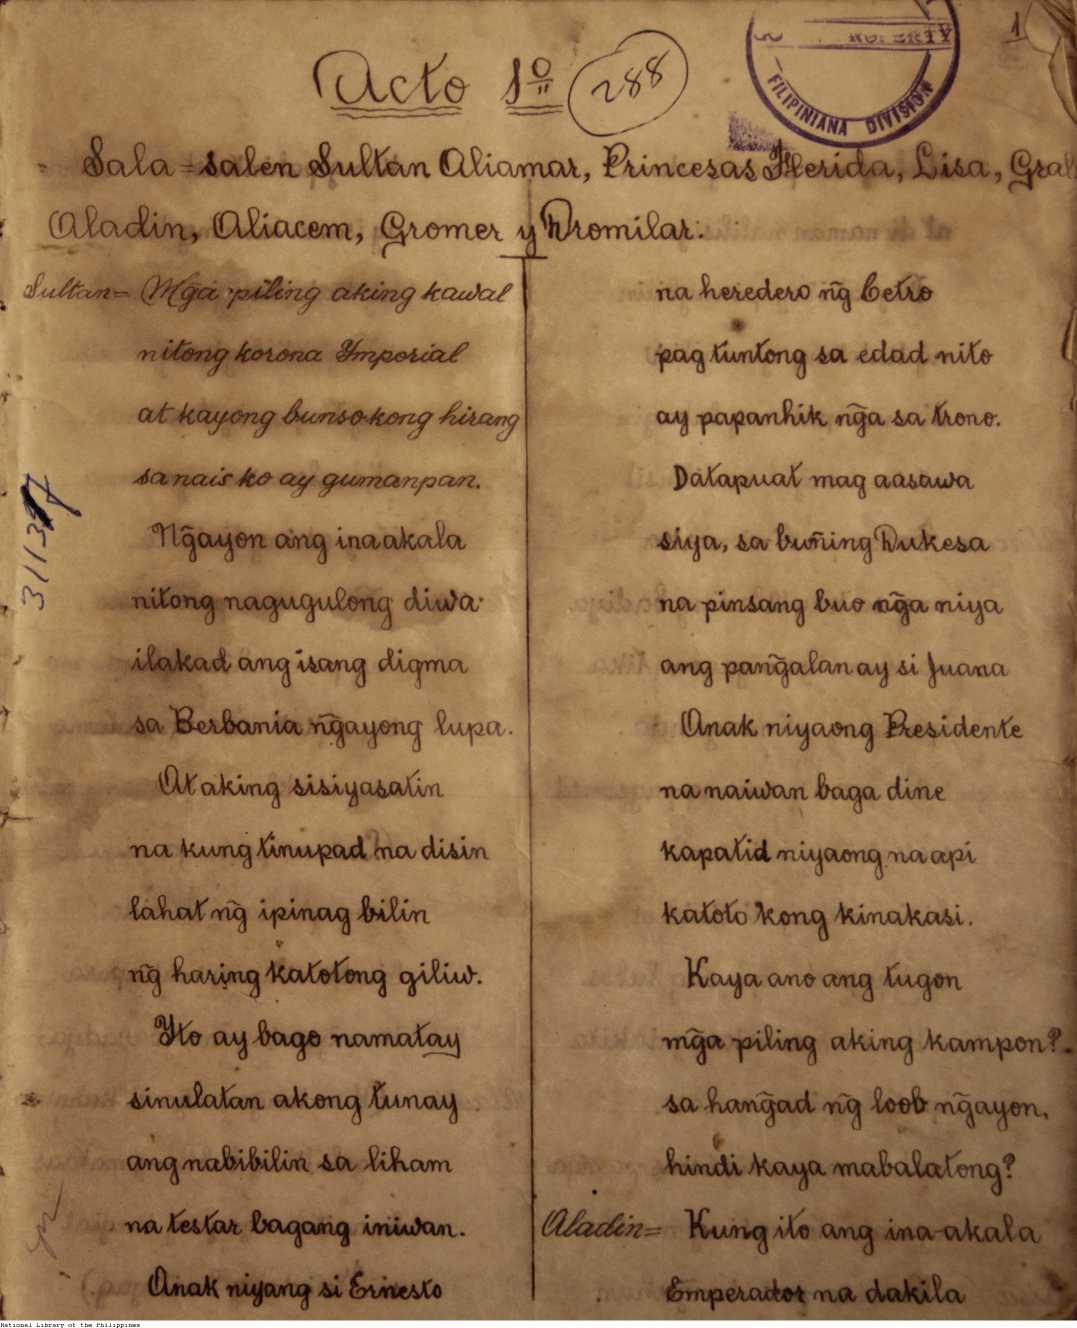 1
Acto 1º
288
ROPERTY
FILIPINIANA DIVISION
Sala = salen Sultan Aliamar, Princesas Flerida, Lisa, Gral
Aladin, Aliacem, Gromer y Dromilar:
Sultan = Mg̃a piling aking kawal
nitong korona Ymperial
at kayong bunso kong hirang
sa nais ko ay gumanpan.
Ng̃ayon ang ina akala
nitong nagugulong diwa
ilakad ang isang digma
sa Berbania ng̃ayong lupa.
At aking sisiyasatin
na kung tinupad na disin
lahat ng̃ ipinag bilin
ng̃ haring katotong giliw.
Yto ay bago namatay
sinulatan akong tunay
ang nabibilin sa liham
na testar bagang iniwan.
Anak niyang si Ernesto
na heredero ng̃ Cetro
pag tuntong sa edad nito
ay papanhik ng̃a sa trono.
Datapuat mag aasawa
siya, sa buñing Dukesa
na pinsang buo ng̃a niya
ang pang̃alan ay si Juana
Anak niyaong Presidente
na naiwan baga dine
kapatid niyaong na api
katoto kong kinakasi.
Kaya ano ang tugon
mg̃a piling aking kampon?
sa hang̃ad ng̃ loob ng̃ayon,
hindi kaya mabalatong?
Aladin = Kung ito ang ina-akala
Emperador na dakila
National Library of the Philippines